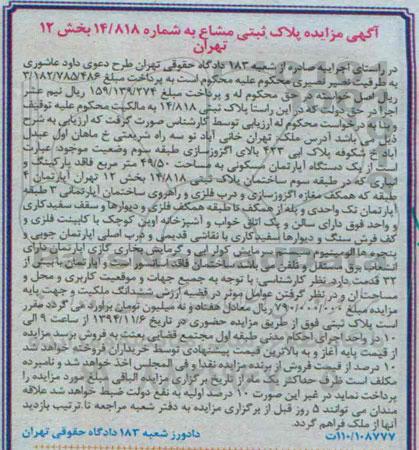 آگهی مزایده پلاک ثبتی مشاع به شماره ۱۴/۸۱۸ بخش ۱۲
تهران
در راستای اجراییه صادره از شعبه ۱۸۳ دادگاه حقوقی تهران طرح دعوی داود عاشوری
به طرفیت نصیر نصیری محکوم علیه محکوم است به پرداخت مبلغ ۳/۱۸۲/۷۸۵/۴۸۶
ریال اصل خواسته در حق محکوم له و پرداخت مبلغ ۱۵۹/۱۳۹/۲۷۴ ریال نیم عشر
اجرا در حق دولت که در این راستا پلاک ثبتی ۱۴/۸۱۸ به مالکیت محکوم علیه توقیف
و بنا به درخواست محکوم له ارزیابی توسط کارشناس صورت گرفت که ارزیابی به شرح
ذیل می باشد آدرس ملک: تهران خانی آباد نو سه راه شریعتی خ ماهان اول عبدل
آباد خ شکوفه پلاک آبی ۴۲۳ بالای اگزوزسازی طبقه سوم وضعیت موجود: عبارت
است از یک دستگاه آپارتمان مسکونی به مساحت ۴۹/۵۰ متر مربع فاقد پارکینگ و
انباری که در طبقه سوم ساختمان پلاک ثبتی ۱۴/۸۱۸ بخش ۱۲ تهران آپارتمان ۴
طبقه که همکف مغازه اگزوزسازی و درب فلزی و راهروی ساختمان آپارتمانی ۳ طبقه
آپارتمان تک واحدی و پله از همکف تا طبقه همکف فلزی و دیوارها و سقف سفیدکاری
و واحد فوق دارای سالن و یک اتاق خواب و آشپزخانه اوپن کوچک با کابینت فلزی و
کف فرش سنگ و دیوارها سفیدکاری با نقاشی قدیمی و درب اصلی آپارتمان چوبی و
پنجره آلومینیوم سرمایش کولر آبی و گرمایش بخاری گازی آپارتمان دارای
انشعاب برق مستقل و تلفن می باشد ساختمان فاقد آسانسور است و آپارتمان بیش از
۳۲ قدمت دارد نظر کارشناسی: با توجه به جمیع جهات و موقعیت کاربری و محل و
مساحت آن و در نظر گرفتن عوامل موثر در قضیه ارزش ششدانگ ملکیت و جهت پایه
مزایده مبلغ ۷۹۰/۰۰۰/۰۰۰ ریال معادل هفتاد و نه میلیون تومان برآورد می گردد مقرر
است پلاک ثبتی فوق از طریق مزایده حضوری در تاریخ ۱۳۹۴/۱۱/۶ از ساعت ۹ الی
۱۰ در واحد اجرای احکام مدنی طبقه اول مجتمع قضایی بعثت به فروش برسد مزایده
از قیمت پایه آغاز و به بالاترین قیمت پیشنهادی توسط خریداران فروخته خواهد شد
۱۰ درصد از قیمت فروش از برنده مزایده نقدا و فی المجلس اخذ خواهد شد و نامبرده
مکلف است ظرف حداکثر یک ماه از تاریخ برگزاری مزایده الباقی مبلغ مورد مزایده را
پرداخت نماید در غیر این صورت ۱۰ درصد اولیه به نفع دولت ضبط خواهد شد علاقه
مندان می توانند ۵ روز قبل از برگزاری مزایده به دفتر شعبه مراجعه تا ترتیب بازدید
آنها از ملک فراهم گردد.
۱۱۰/۱۰۸۷۷۷ت دادورز شعبه ۱۸۳ دادگاه حقوقی تهران